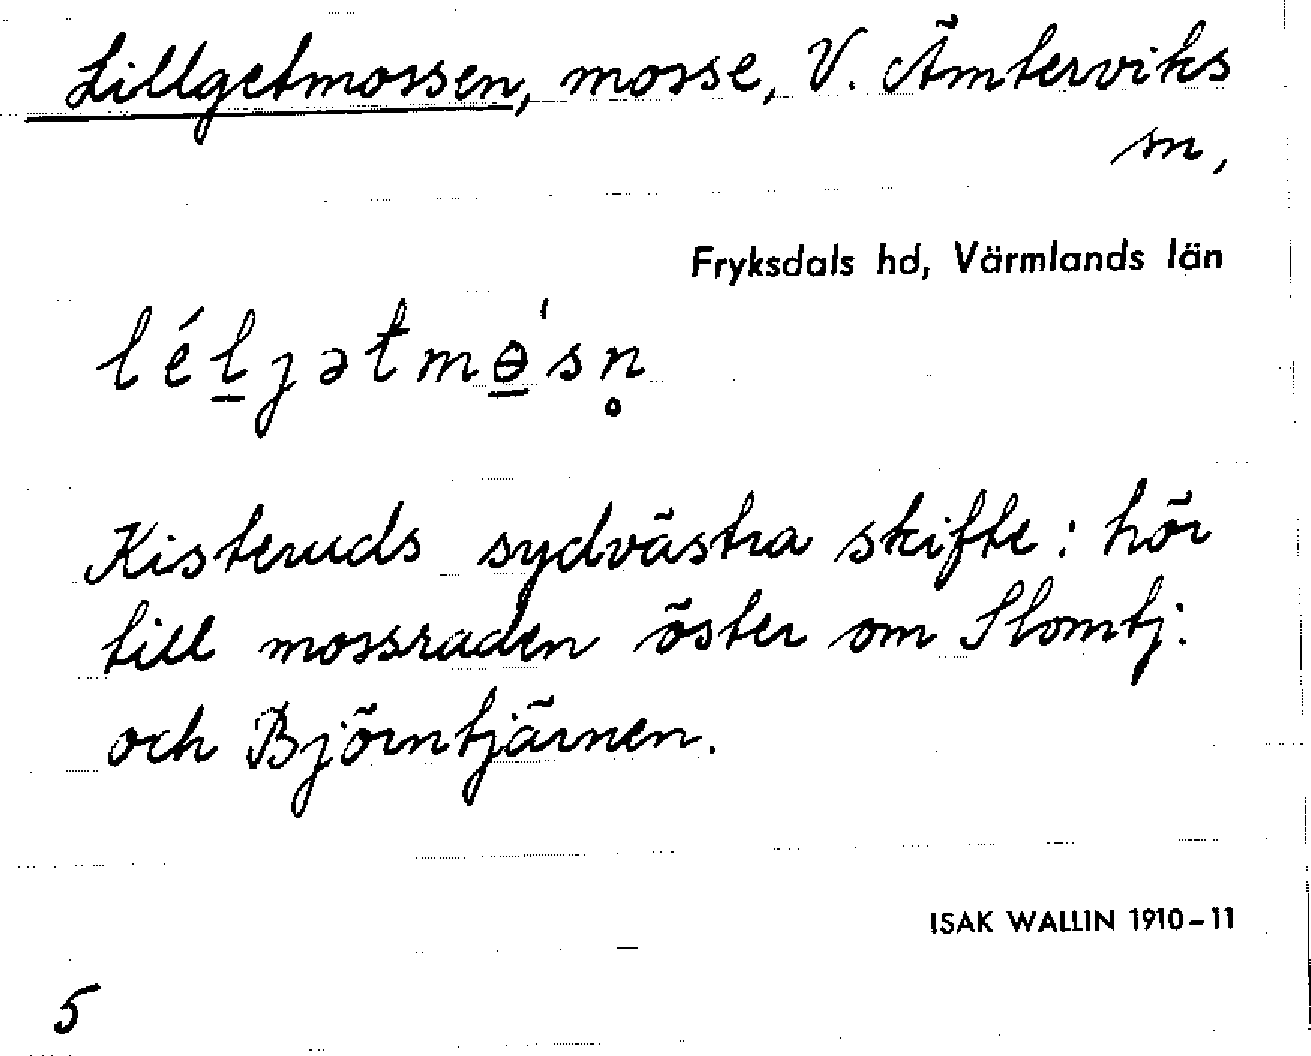 Lillgetmossen, mosse, V. Ämterviks
sn,
Fryksdals hd, Värmlands län
lél̲jətmɵ̲'sn̥
Kisteruds sydvästra skifte: hör
till mossraden öster om Slomtj.
och Björntjärnen.
ISAK WALLIN 1910-11
5